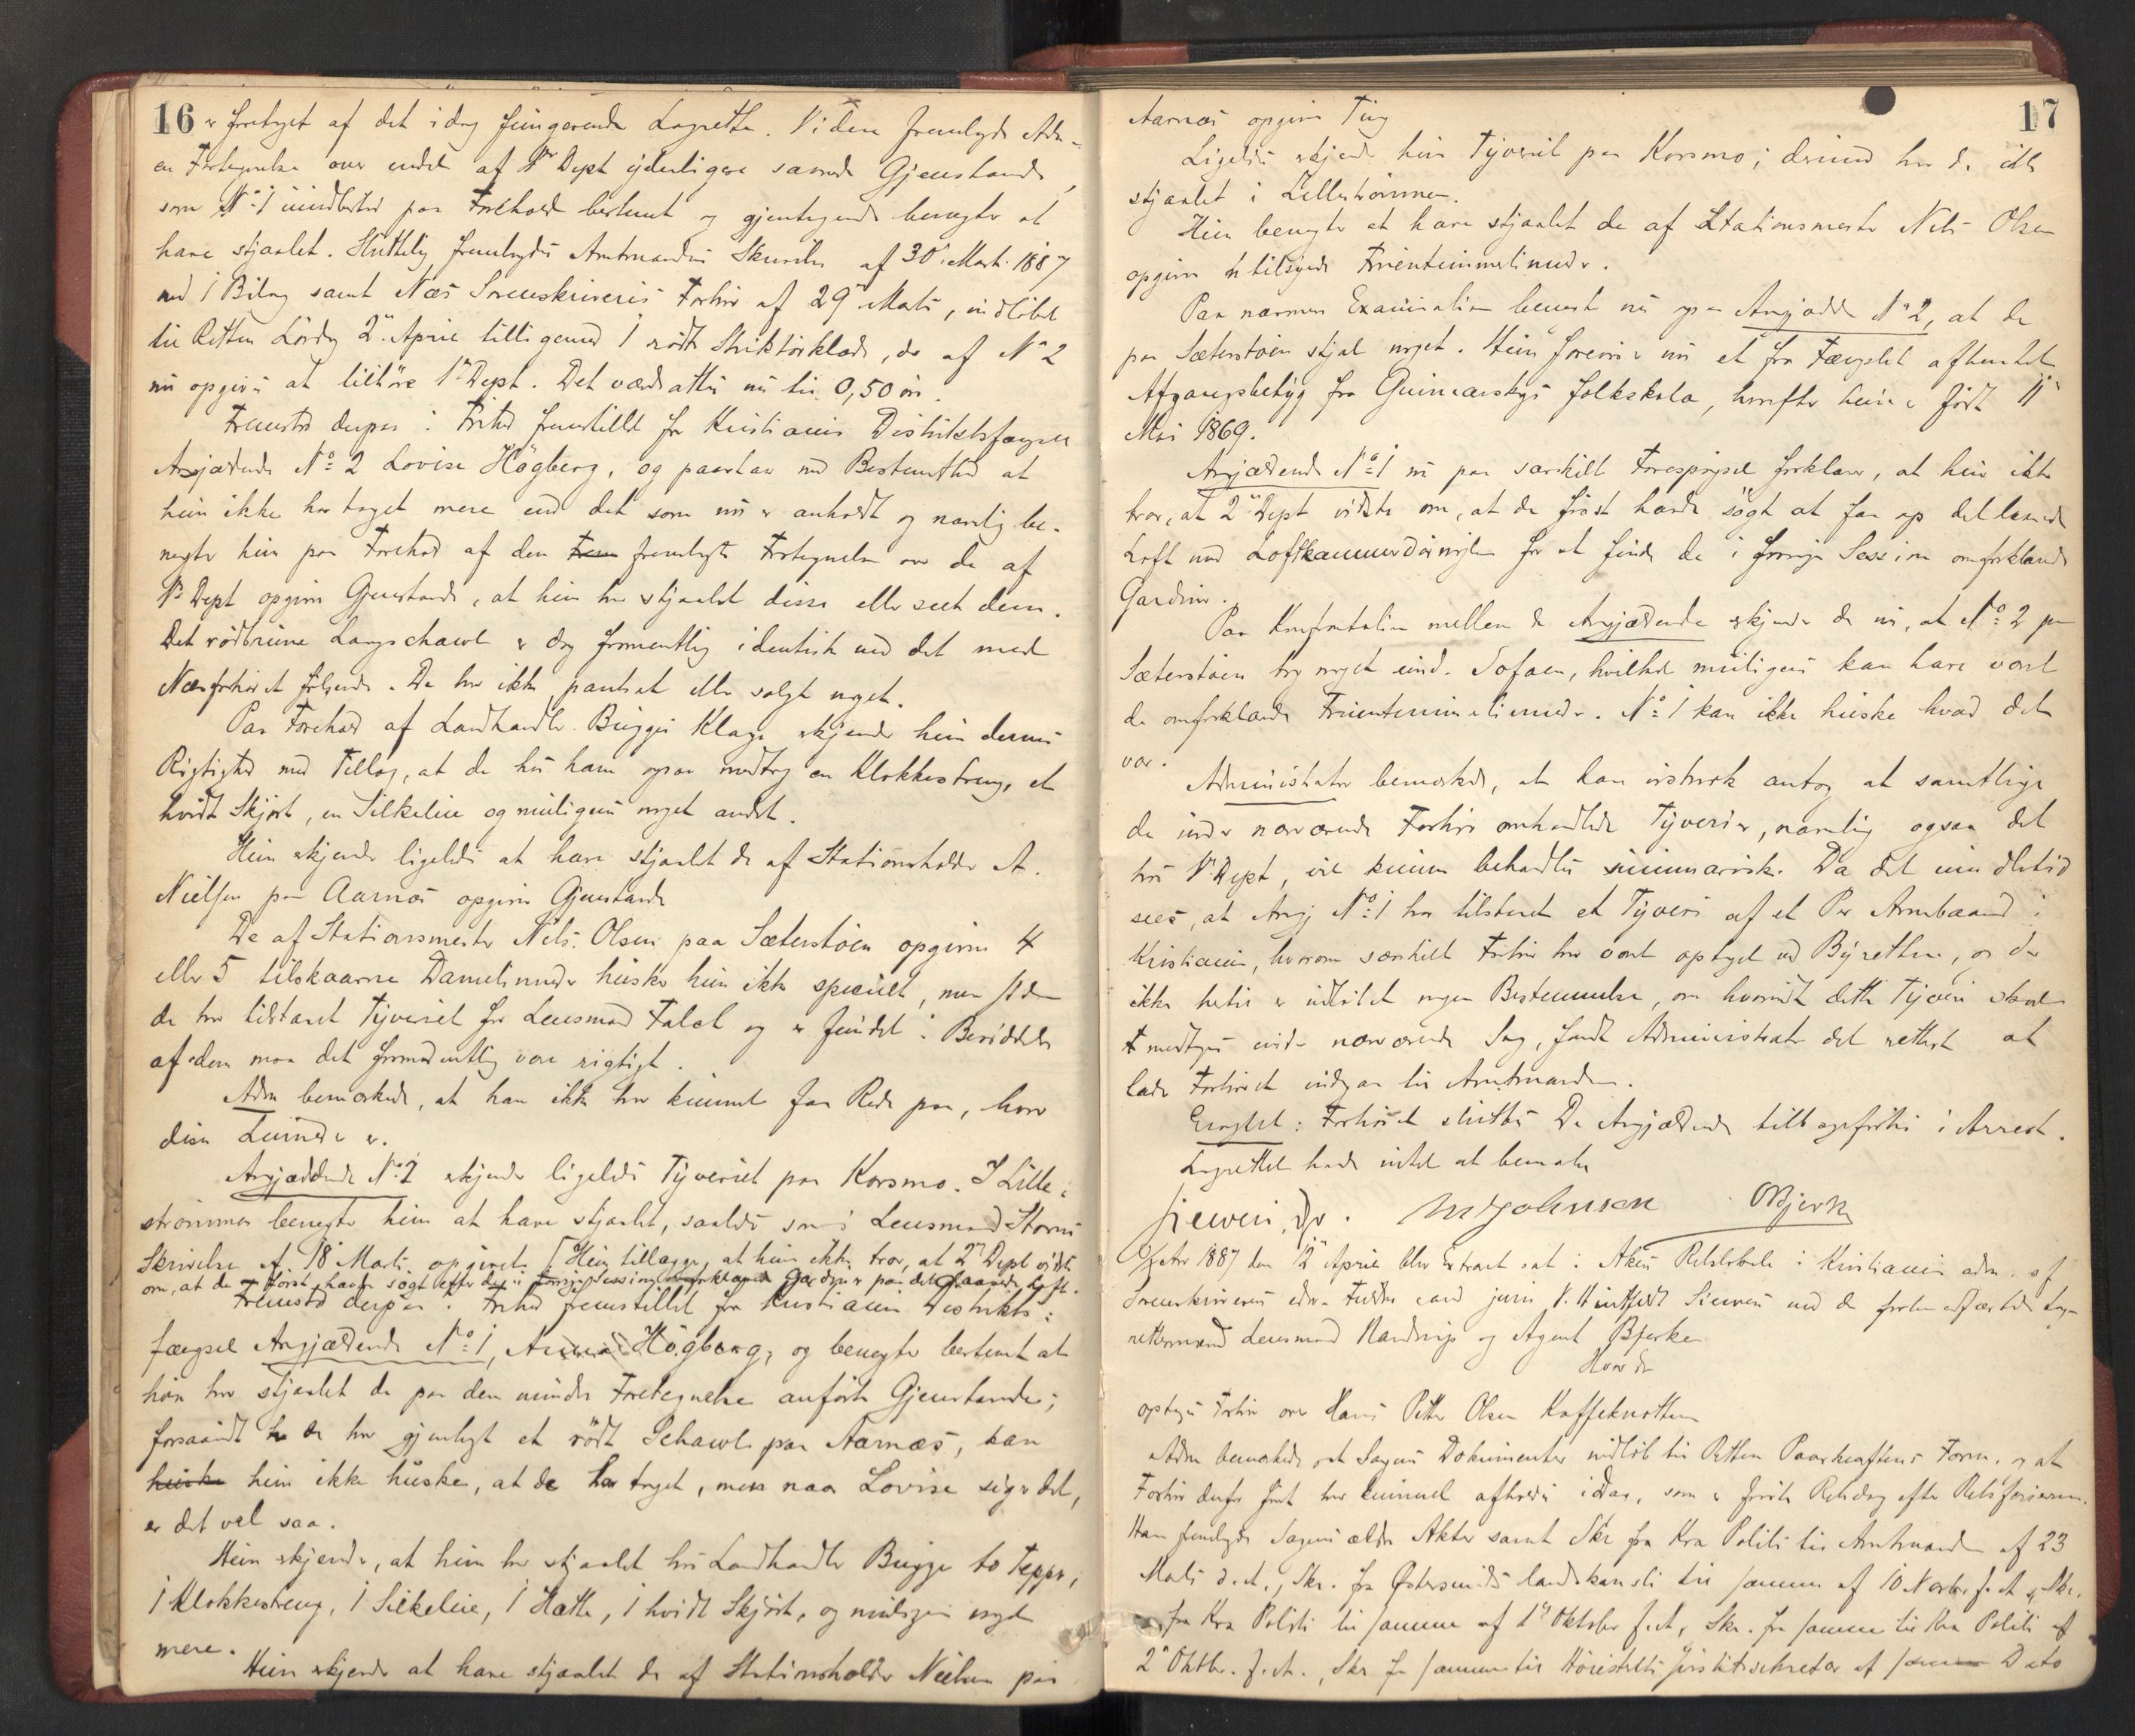 16
er foretaget af det idag fungerende Lagrette. Videre fremlagde Adm.
en Fortegnelse over endel af 1ste Dept yderligere savnede Gjenstande,
som No 1 imidlertid paa Forehold bestemt og gjentagende benegter at
have stjaalet. Sluttelig fremlagdes Amtmandens Skrivelse af 30 Marts 1887
med 1 Bilag samt Næs Sorenskriveris Forhør af 29 Marts, indløbet
til Retten Lørdag 2. April tilligemed 1 rødt Striktørklæde, der af No 2
nu opgives at tilhøre 1ste Dept. Det værdsattes nu til 0,50 øre.
Fremstod derpaa i Frihed fremstillet fra Kristiania Distriktsfængsel
Angjældende No 2 Lovise Högberg, og paastaar med Bestemthed at
hun ikke har taget mere end det som nu er anholdt og navnlig be-
negter hun paa Forehold af den fremlagte Fortegnelse over de af
1ste Dept opgivne Gjenstande, at hun har stjaalet disse eller seet dem.
Det rødbrune Langschawl er dog formentlig identisk med det med
Næsforhøret følgende. De har ikke pantsat eller solgt noget.
Paa Forehold af Landhandler Bugges Klage erkjender hun dennes
Rigtighed med Tillæg, at de hos ham ogsaa medtog en Klokkestreng, et
hvidt Skjørt, en Silkelue og muligens noget andet.
Hun erkjender ligeledes at have stjaalet de af Stationsholder A.
Nielsen paa Aarnæs opgivne Gjenstande
De af Stationsmester Nils Olsen paa Sæterstøen opgivne 4
eller 5 tilskaarne Dameliinneder husker hun ikke specielt, men siden
de har tilstaaet Tyveriet for Lensmand Falck og er fundet i Besiddelse
af dem maa det formodentlig være rigtigt.
Adm bemærkede, at han ikke har kunnet faa Rede paa, hvor
disse er.
Angjældende No 2 erkjender ligeledes Tyveriet paa Korsmo. I Lille-
strømmen benegter hun at have stjaalet, saaledes som i Lensmand Storms
Skrivelse af 18 Marts opgivet. [Hun tillægger, at hun ikke tror, at 2den Dept vidste
om, at de først havde søgt efter de i forrige Session omforklarede Gardiner paa det laasede Loft.
Fremstod derpaa i Frihed fremstillet fra Kristiania Distrikts-
fængsel Angjældende No 1, Anna Högberg, og benegter bestemt at
hun har stjaalet de paa den mindre Fortegnelse anførte Gjenstande;
forsaavidt der har gjenlagt et rødt Schawl paa Aarnæs, kan
hun ikke huske, at de har taget, men naar Lovise siger det,
er det vel saa.
Hun erkjender, at hun har stjaalet hos Landhandler Bugge to Tepper,
1 Klokkestreng, 1 Silkelue, 1 Hætte, 1 hvidt Skjørt, og muligens noget
mere.
Hun erkjender at have stjaalet de af Stationsholder Nielsen paa
17
Aarnæs opgivne Ting
Ligeledes erkjender hun Tyveriet paa Korsmo; derimod har de ikke
stjaalet i Lillestrømmen.
Hun benegter at have stjaalet de af Stationsmester Nils Olsen
opgivne tilsyede Fruentimmerlinneder.
Paa nærmere Examination benegter nu ogsaa Angjældende No 2, at de
paa Sæterstøen stjal noget. Hun foreviser nu et fra Fængslet afhentet
Afgangsbetyg fra folkskola, hvorefter hun er født 11
Mai 1869.
Angjældende No 1 nu paa særskilt Forespørgsel forklarer, at hun ikke
tror, at 2den Dept vidste om, at de først havde søgt at faa op det laasede
Loft med Loftkammerdørnøglen for at finde de i forrige Session omforklarede
Gardiner.
Paa Konfrontation mellem de Angjældende erkjender de nu, at No 2 paa
Sæterstøen tog noget under Sofaen, hvilket muligens kan have været
de omforklarede Fruentimmerlinneder. No 1 kan ikke huske hvad det
var.
Administrator bemærkede, at han antog at samtlige
de under nærværende Forhør omhandlede Tyverier, navnlig ogsaa det
hos 1ste Dept, vil kunne behandles summarisk. Da det imidlertid
sees, at Angj No 1 har tilstaaet et Tyveri af et Par Armbaand i
Kristiania, hvorom særskilt Forhør har været optaget ved Byretten, og der
ikke hertil er indløbet nogen Bestemmelse, om hvorvidt dette Tyveri skal
medtages under nærværende Sag, fandt Administrator det rettest at
lade Forhøret indgaa til Amtmanden.
Eragtet: Forhøret sluttes De Angjældende tilbageføres i Arrest.
Lagrettet havde intet at bemærke
Siewers, Dr. M Johnsen OBjerke
Aar 1887 den 12 April blev Extraret sat i Akers Retslokale i Kristiania adm. af
Sorenskriverens edsv. Fuldm cand juris V. Huitfeldt Siewers med de forhen edfæstede Lag-
rettesmænd Lensmand og Agent Bjerke
Hvor da
optoges Forhør over Hans Petter Olsen Kaffeknatten
Adm bemærkede at Sagens Dokumenter indløb til Retten Paaskeaftens Form. og at
Forhør derfor først har kunnet afholdes idag, som er første Retsdag efter Retsferierne.
Han fremlagde Sagens ældre Akter samt Skr fra Kra Politi til Amtmanden af 23
Marts d.A., Skr. fra Östersunds landskansli til samme af 10 Novbr. f.A., Skr.
fra Kra Politi til samme af 1ste Oktober f.A., Skr. fra samme til Kra Politi af
2 Oktbr. f.A., Skr fra samme til af samme Dato